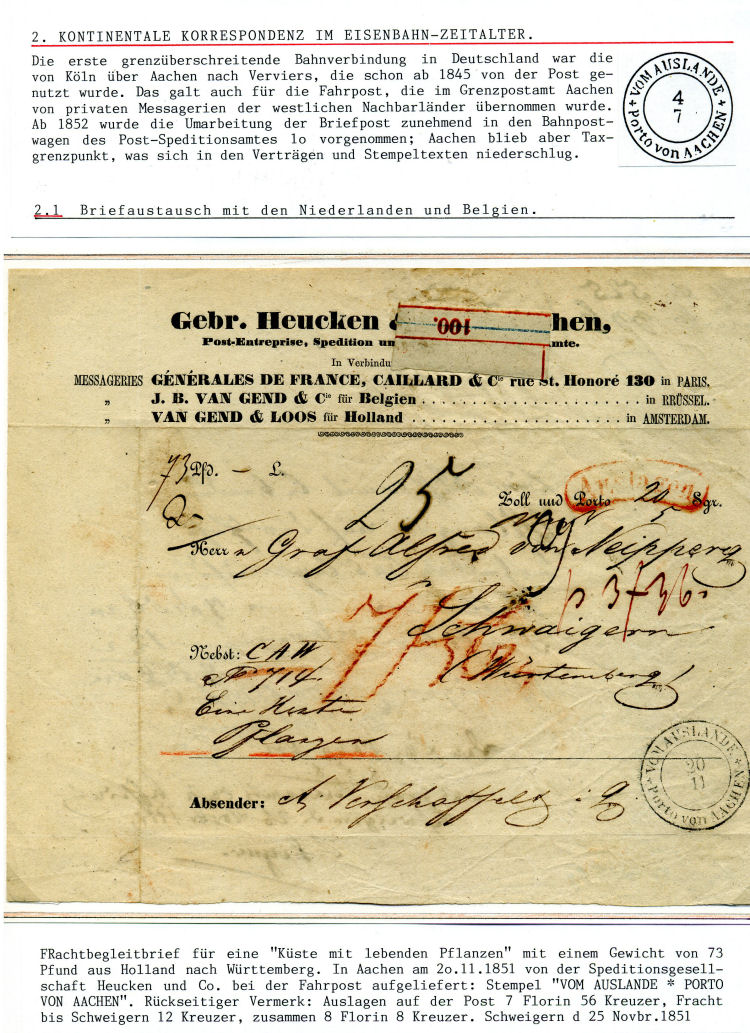 2. KONTINENTALE KORRESPONDENZ IM EISENBAHN-ZEITALTER.
Die erste grenzüberschreitende Bahnverbindung in Deutschland war die
von Köln über Aachen nach Verviers, die schon ab 1845 von der Post ge-
nutzt wurde. Das galt auch für die Fahrpost, die im Grenzpostamt Aachen
von privaten Messagerien der westlichen Nachbarländer übernommen wurde.
Ab 1852 wurde die Umarbeitung der Briefpost zunehmend in den Bahnpost-
wagen des Post-Speditionsamtes 1o vorgenommen; Aachen blieb aber Tax-
grenzpunkt, was sich in den Verträgen und Stempeltexten niederschlug.
VOM AUSLANDE
4
7
Porto von AACHEN
2.1 Briefaustausch mit den Niederlanden und Belgien.
Gebr. Heucken & hen,
100.
Post-Entreprise, Spedition un mte.
In Verbindu
MESSAGERIES GÉNÉRALES DE FRANCE, CAILLARD & Cie rue St. Honoré 130 in PARIS.
„ J. B. VAN GEND & Cie für Belgien . . . . . . . . . . . . . . . . . . . . . . . in BRÜSSEL.
„ VAN GEND & LOOS für Holland . . . . . . . . . . . . . . . . . . . . . . in AMSTERDAM.
73 Pfd. – L.
25
Zoll und Porto 20 Sgr.
Auslagen
Herr n Graf Alfred von Neipperg
Schwaigern
Nebst: CAW
N° 714.
(Würtemberg)
Eine Kiste
Pflanzen
VOM AUSLANDE
20
11
Porto von AACHEN
Absender: A. Verschaffelt
FRachtbegleitbrief für eine "Küste mit lebenden Pflanzen" mit einem Gewicht von 73
Pfund aus Holland nach Württemberg. In Aachen am 2o.11.1851 von der Speditionsgesell-
schaft Heucken und Co. bei der Fahrpost aufgeliefert: Stempel "VOM AUSLANDE * PORTO
VON AACHEN". Rückseitiger Vermerk: Auslagen auf der Post 7 Florin 56 Kreuzer, Fracht
bis Schweigern 12 Kreuzer, zusammen 8 Florin 8 Kreuzer. Schweigern d 25 Novbr.1851